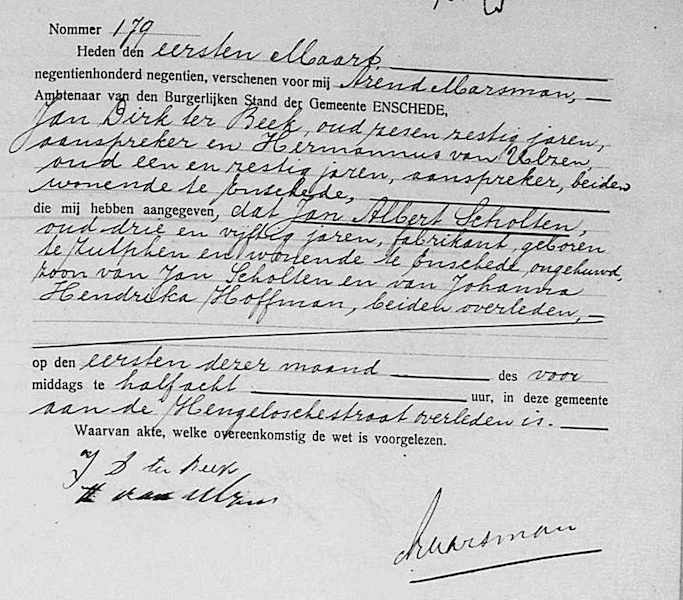 Nommer 179
Heden den eersten Maart
negentienhonderd negentien, verschenen voor mij Arend Marsman,
Ambtenaar van den Burgerlijken Stand der Gemeente ENSCHEDE,
Jan Dirk ter Beek, oud zesen zestig jaren,
aanspreker en Hermannus van Ulzen,
oud een en zestig jaren, aanspreker, beiden
wonende te Enschede,
die mij hebben aangegeven, dat Jan Albert Scholten,
oud drie en vijftig jaren, fabrikant, geboren
te Zutphen en wonende te Enschede, ongehuwd,
zoon van Jan Scholten en van Johanna
Hendrika Hoffman, beiden overleden,
op den eersten dezer maand des voor
middags te half acht uur, in deze gemeente
aan de Hengeloschestraat overleden is.
Waarvan akte, welke overeenkomstig de wet is voorgelezen.
J D ter Beek
H van Ulzen
AMarsman